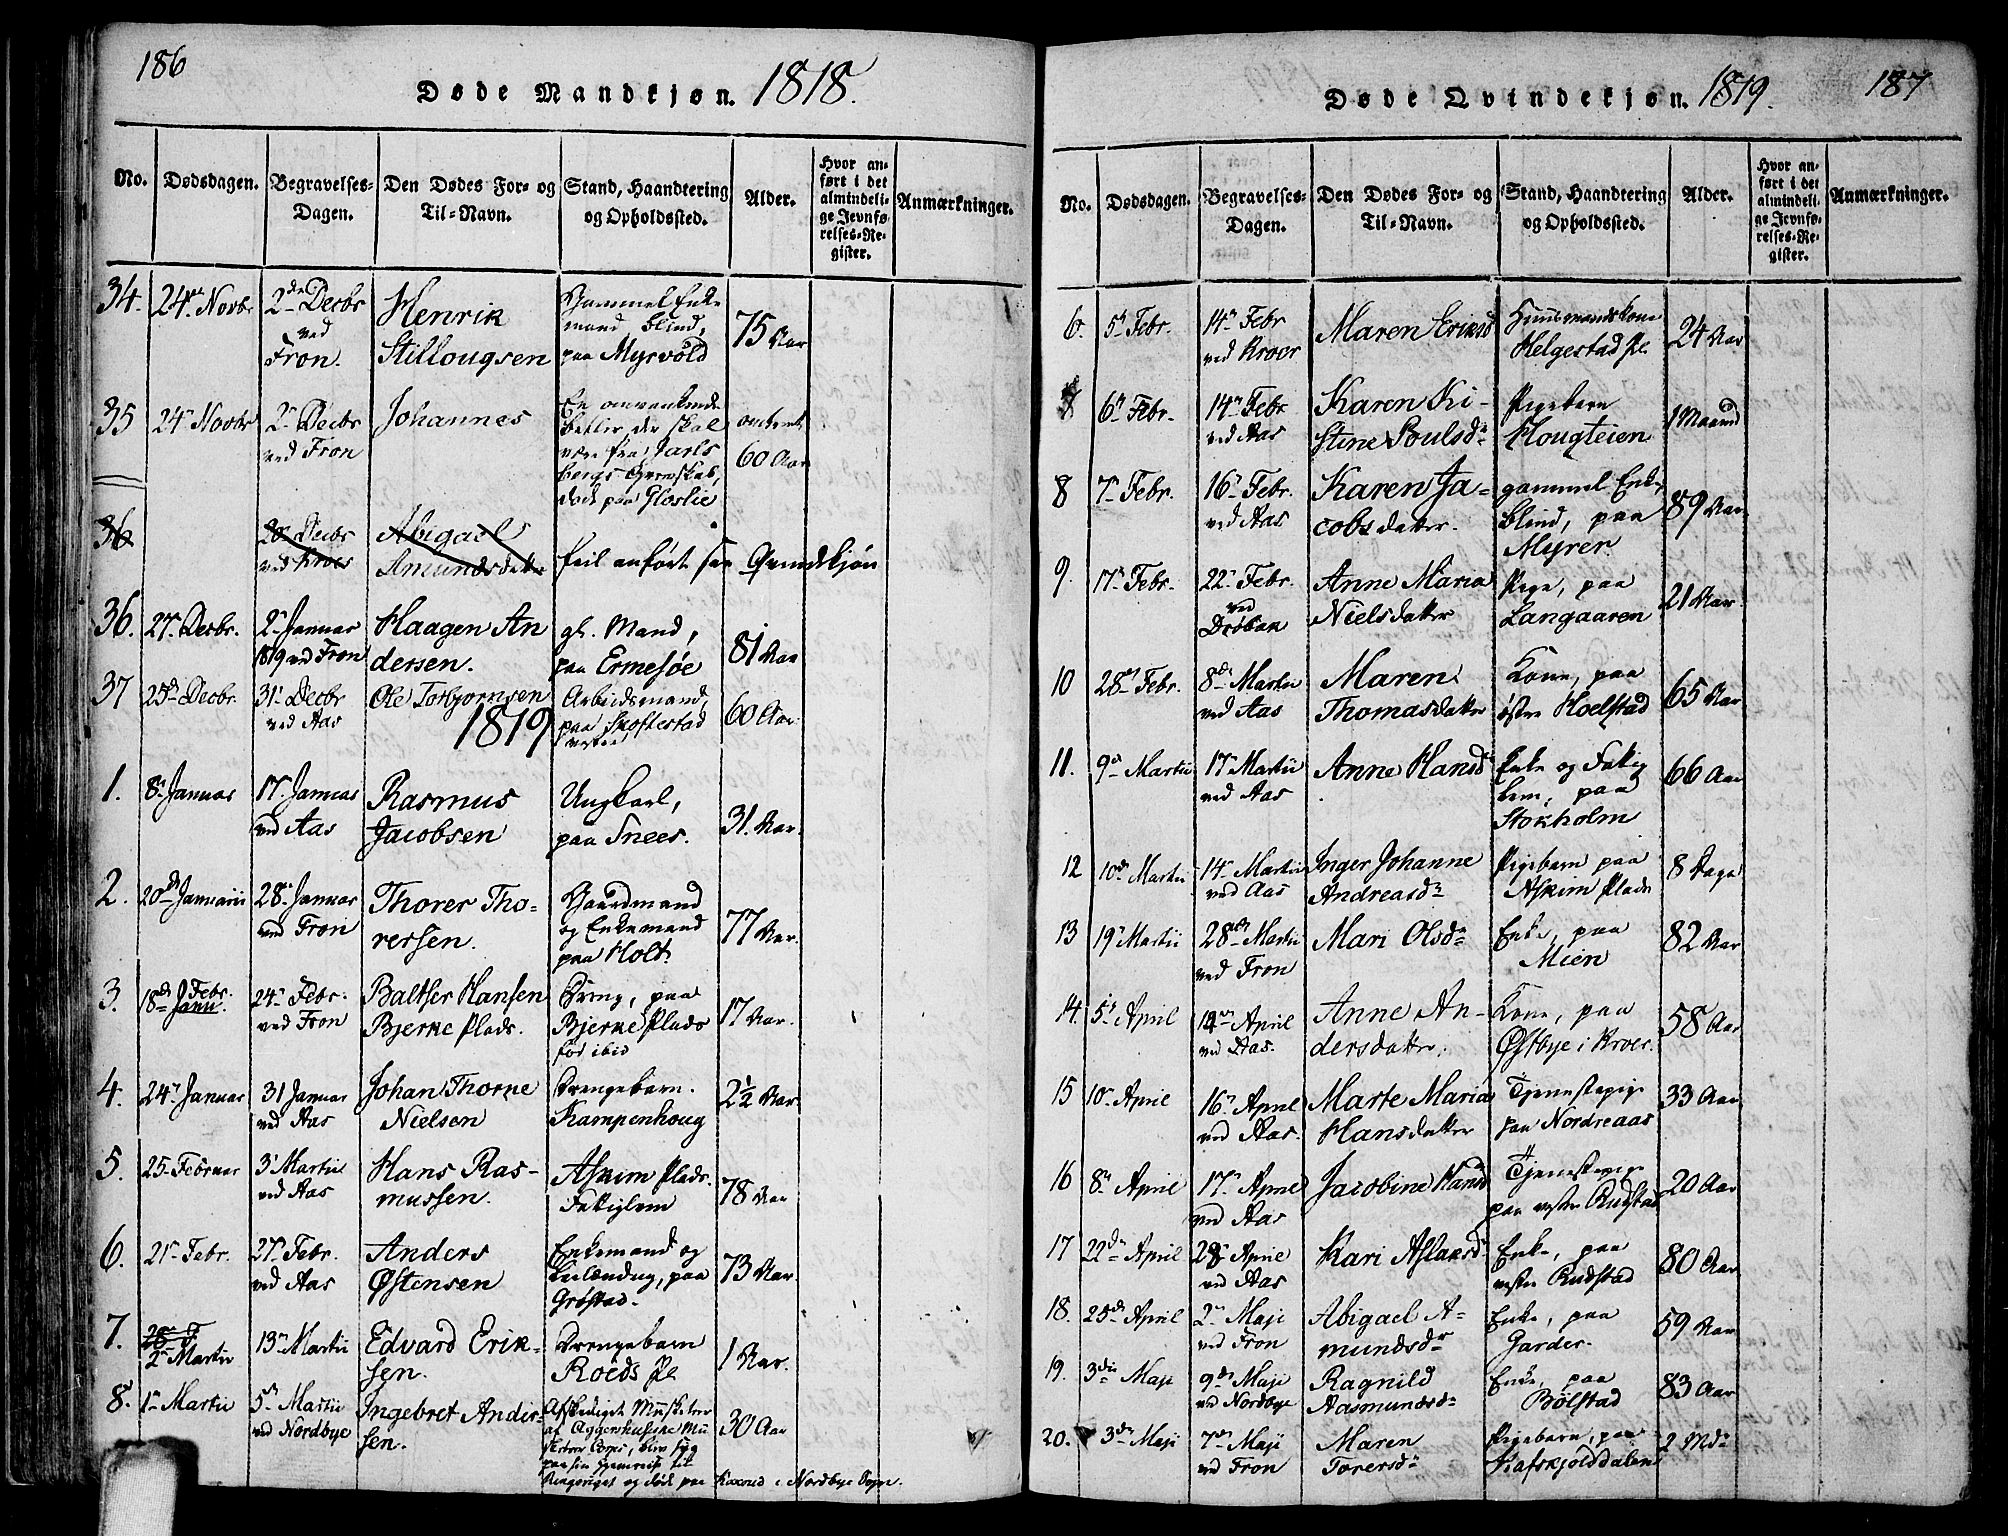 186
Døde Mandkjøn. 1818.
No. Dødsdagen. Begravelses-Dagen. Den Dødes For- og Til-Navn. Stand, Haandtering og Opholdssted. Alder. Hvor anført i det almindelige Jevnførelses-Register. Anmærkninger.
34. 24de Novbr 2de Decbr ved Fron. Henrik Stillougsen Gammel Enkemand, blind, paa Myrvold 75 Aar
35 24de Novbr 2de Decbr ved Fron Johannes En omvankende betler, der skal være fra Jarlsbergs Grevskab, død paa Gloslie omtrent 60 Aar
36 20 Decbr ved Kroer Abigael Amundsdatter feil anført see Qvindekjøn
36. 27de Decbr. 2de Januar 1819 ved Fron Haagen Andersen. gl. Mand, paa Ermesøe 81 Aar
37 25de Decbr. 31te Decbr ved Aas Ole Torbjørnsen Arbeidsmand, paa Skoftestad vestre 60 Aar.
1819
1. 8de Januar 17de Januar ved Aas Rasmus Jacobsen Ungkarl, paa Snees. 31. Aar.
2. 20de Januarii 28de Januar ved Fron Thorer Thorersen. Gaardmand og Enkemand paa Holt 77 Aar.
3. 18de Febr. Janu. 24de Febr. ved Fron Baltser Hansen Bjerke Plads. Dreng, paa Bjerke Plads fød ibid 17 Aar.
4. 24de Januar 31 Januar ved Aas Johan Thorne Nielsen Drengebarn. Kampenhoug 2½ Aar.
5. 25de Februar 3de Martii ved Aas Hans Rasmussen. Askim Plads. Fattiglem 78 Aar
6. 21de Febr. 27de Febr. ved Aas Anders Østensen Enkemand og paa Grøstad. 73 Aar.
7. 28de F 2den Martii 13de Martii Edvard Eriksen. Drengebarn Roeds Pl 1 Aar.
8. 1ste Martii 5de Martii ved Nordbye Ingebret Andersen. Afskediget Musketeer af Aggerhusiske Musketeer Corps, blev syg paa sin Hjemreise til Ringeriget og døde paa i Nordbye Sogn. 30 Aar
187
Døde Qvindekjøn. 1819.
No. Dødsdagen. Begravelses-Dagen. Den Dødes For- og Til-Navn. Stand, Haandtering og Opholdssted. Alder. Hvor anført i det almindelige Jevnførelses-Register. Anmærkninger.
6. 5te Febr. 14de Febr ved Kroer Maren Eriksd Huusmandskone Helgestad pl. 24 Aar
7 6te Febr. 14de Febr ved Aas Karen Kistine Poulsdr Pigebarn Hougteien 1 Maaned
8 7de Febr. 16de Febr. ved Aas Karen Jacobsdatter. gammel Enke, blind, paa Myrer. 89 Aar
9. 17de Febr. 22de Febr. ved Drøbak Anne Maria Nielsdatter Pige, paa Langaaren 21 Aar.
10 28de Febr. 8de Martii ved Aas Maren Thomasdatter Kone, paa østre Hoelstad 65 Aar
11. 9de Martii 17de Martii ved Aas Anne Hansd Enke og Fattiglem, paa Stokholm 66 Aar
12 10de Martii 14de Martii ved Aas Inger Johanne Andreasdr Pigebarn paa Askim Plads 8 Dage
13 19de Martii 28de Martii ved Fron Mari Olsdr Enke, paa Mien 82 Aar
14. 5te April 12te April ved Aas. Anne Andersdatter. Kone, paa Østbye i Kroer. 58 Aar
15 10de April 16de April ved Aas. Marte Maria Hansdatter Tjenestepige paa Nordreaas 33 Aar
16 8de April 17de April ved Aas Jacobine Hansd Tjenestepige paa vestre Rudstad 20 Aar
17 22de April 28de April ved Aas Kari Aslaksdr Enke, paa vestre Rudstad 80 Aar
18. 25de April 2den Maji ved Fron Abigael Amundsdr Enke, paa Garder. 59 Aar
19. 3die Maji 9de Maji ved Nordbye Ragnild Aasmundsdr Enke, paa Bølstad 83 Aar
20. 3die Maji 7de Maji ved Fron Maren Torersdr Pigebarn, paa Kafskjolddalen 2 Mdr